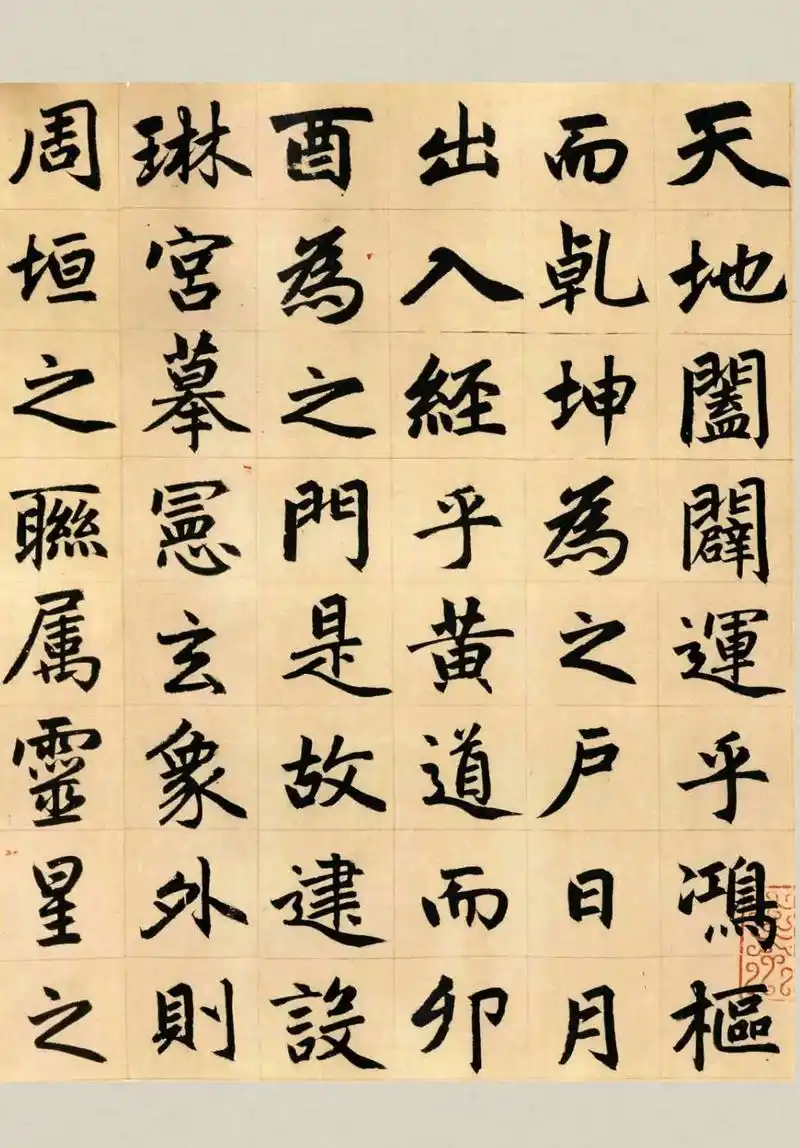 天地闔闢運乎鴻樞
而乹坤為之户日月
出入經乎黃道而卯
酉為之門是故建設
琳宮摹憲玄象外則
周垣之聮属靈星之